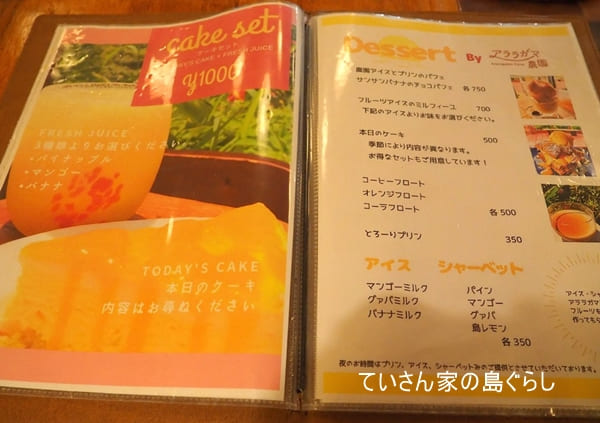 cake set
ケーキセット
TODAY'S CAKE + FRESH JUICE
¥1000
FRESH JUICE
3種類よりお選びください
•パイナップル
•マンゴー
•バナナ
TODAY'S CAKE
本日のケーキ
内容はお尋ねください
Dessert By アララガマ農園
農園アイスとプリンのパフェ
サンサンバナナのチョコパフェ 各750
フルーツアイスのミルフィーユ 700
下記のアイスよりお味をお選びください。
本日のケーキ 500
季節により内容が異なります。
お得なセットもご用意しています！
コーヒーフロート
オレンジフロート
コーラフロート
各500
とろーりプリン 350
アイス シャーベット
マンゴーミルク パイン
グァバミルク マンゴー
バナナミルク グァバ
島レモン
各350
アイス・シャ
アララガマ
フルーツを
作っても
夜のお時間はプリン、アイス、シャーベットのみのご提供とさせていただいております。
ていさん家の島ぐらし